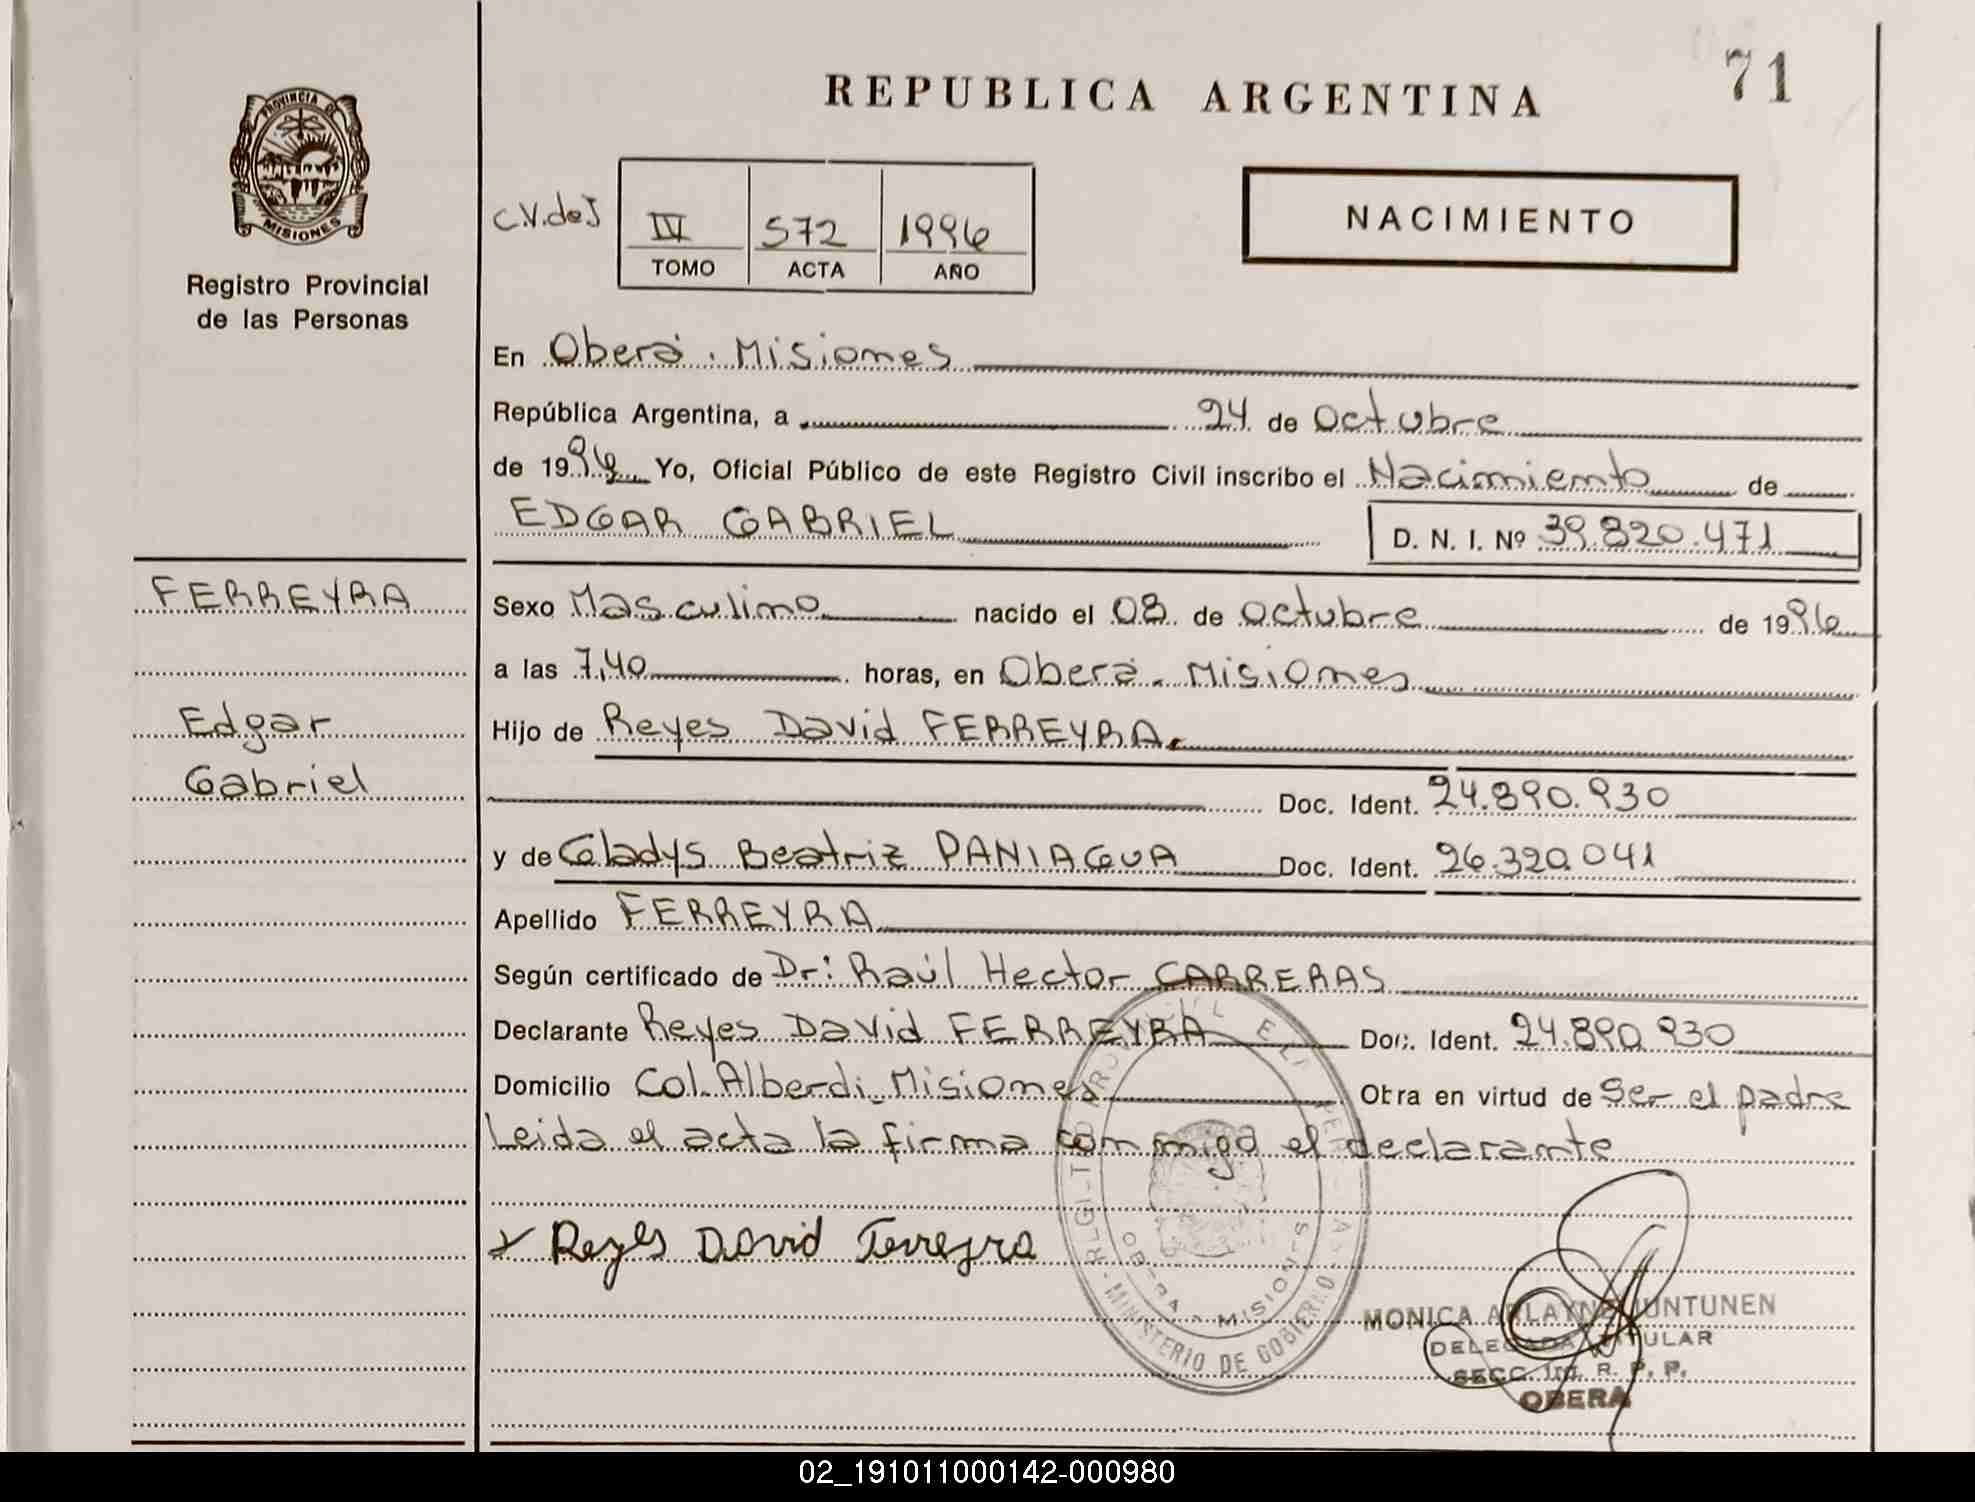 REPUBLICA ARGENTINA
71
PROVINCIA DE
MISIONES
Registro Provincial
de las Personas
C.V.deJ
IV 572 1996
TOMO ACTA AÑO
NACIMIENTO
En Oberá. Misiones
República Argentina, a 24 de Octubre
de 1996 Yo, Oficial Público de este Registro Civil inscribo el Nacimiento de
EDGAR GABRIEL D. N. I. Nº 39.820.471
FERREYRA
Edgar
Gabriel
Sexo Masculino nacido el 08 de Octubre de 1996
a las 7,40 horas, en Oberá. Misiones
Hijo de Reyes David FERREYRA.
Doc. Ident. 24.890.930
y de Gladys Beatriz PANIAGUA Doc. Ident. 26.320.041
Apellido FERREYRA
Según certificado de Dr: Raúl Hector CARRERAS
Declarante Reyes David FERREYRA Doc. Ident. 24.890.930
Domicilio Col. Alberdi. Misiones Obra en virtud de Ser el padre
Leida el acta la firma conmigo el declarante
Reyes David Ferreyra
OBERA - MISIONES
MINISTERIO DE GOBIERNO
MONICA ARLAYNE JUNTUNEN
DELEGADA TITULAR
SECC. 1ra. R. P. P.
OBERA
02_191011000142-000980